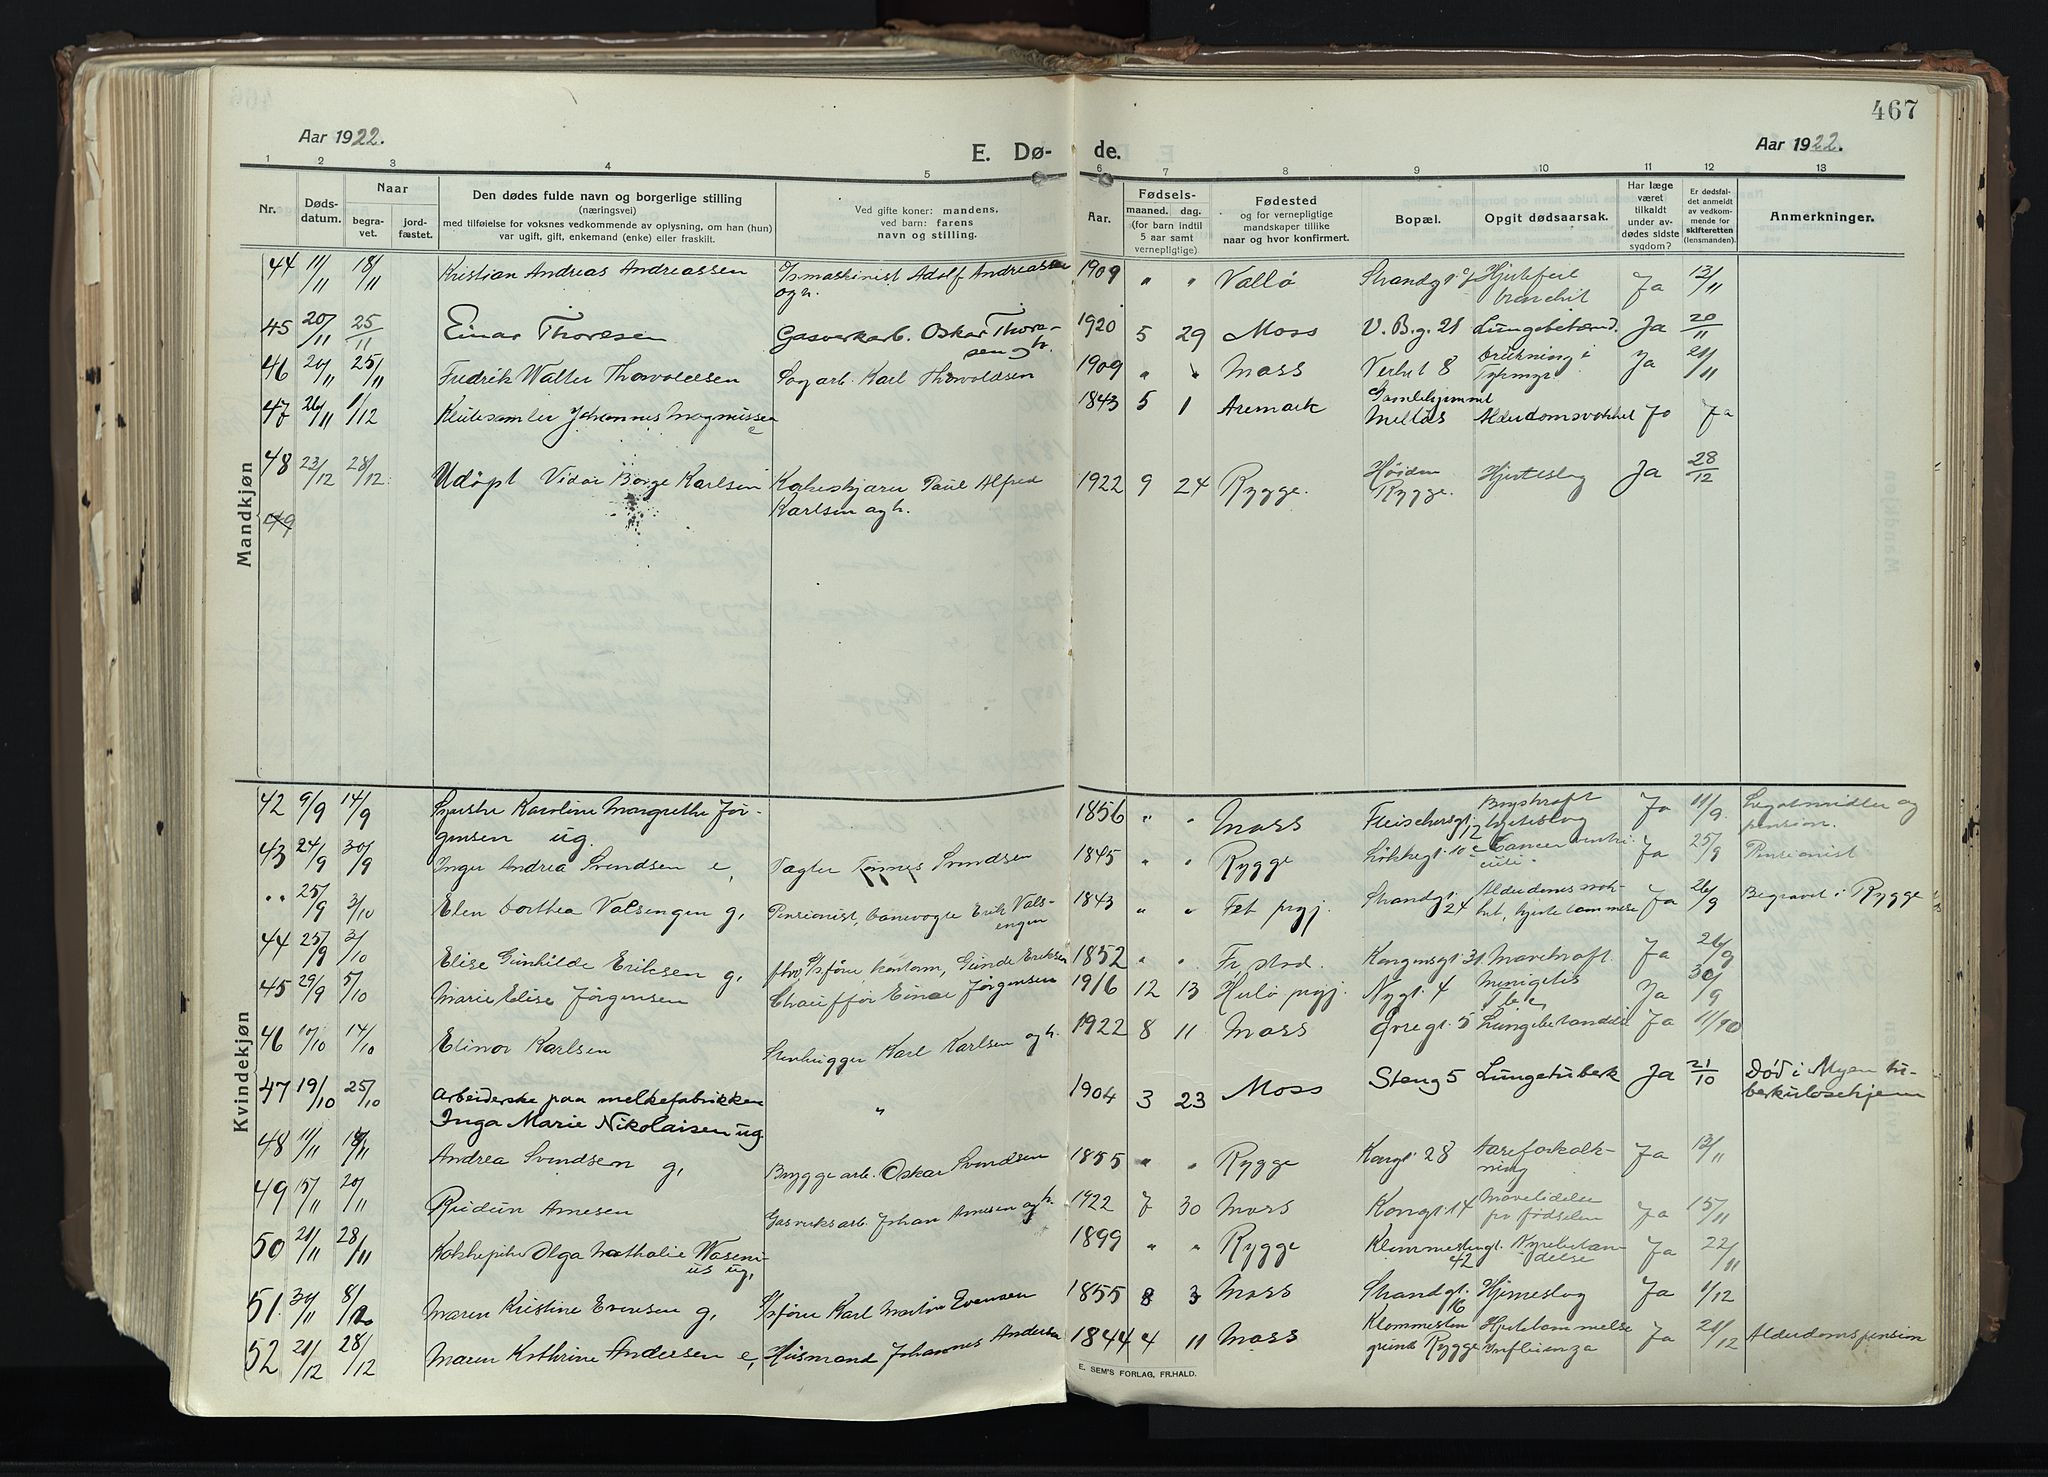 467
Aar 1922.
E. Dø- de.
Aar 1922.
1 2 3 4 5 6 7 8 9 10 11 12 13
Nr.
Døds-
datum.
Naar
begra-
vet.
jord-
fæstet.
Den dødes fulde navn og borgerlige stilling
(næringsvei)
med tilføielse for voksnes vedkommende av oplysning, om han (hun)
var ugift, gift, enkemand (enke) eller fraskilt.
Ved gifte koner: mandens,
ved barn: farens
navn og stilling.
Aar.
Fødsels-
maaned. dag.
(for barn indtil
5 aar samt
vernepligtige)
Fødested
og for vernepligtige
mandskaper tillike
naar og hvor konfirmert.
Bopæl.
Opgit dødsaarsak.
Har læge
været
tilkaldt
under av-
dødes sidste
sygdom?
Er dødsfal-
det anmeldt
av vedkom-
mende for
skifteretten
(lensmanden).
Anmerkninger.
Mandkjøn
44 11/11 18/11 Kristian Andreas Andreassen maskinist Adolf Andreassen 1909 " " Vallø Hjertefeil Ja 13/11
og h.
45 20/11 25/11 Einar Thoresen Gasverkarb. Oskar Thore- 1920 5 29 Moss V. B.g. 21 Lungebetænd. Ja 20/11
sen og h.
46 20/11 25/11 Fredrik Walter Thorvaldsen Sagarb. Karl Thorvaldsen 1909 " " Moss Verket 8 Drukning i Ja 21/11
47 26/11 1/12 Klutesamler Johannes Magnussen 1843 5 1 Aremark Gamlehjemmet
Melløs Alderdomsvakhet Ja Ja
e
48 23/12 28/12 Udøpt Vidar Børge Karlsen Paul Alfred 1922 9 24 Rygge. Høiden Hjerteslag Ja 28/12
Karlsen og h. Rygge.
49
Kvindekjøn
42 9/9 14/9 Karoline Margrethe Jør- 1856 " " Moss Fleischersgt. Brystkraft Ja 11/9 Legatmidler og
gensen ug. 12 hjerteslag pension.
43 24/9 30/9 Inger Andrea Svendsen e, Vagter Tønnes Svendsen 1845 " " Rygge Løkkegt. 10 c Cancer ventri- Ja 25/9 Pensionist
culi
" 25/9 3/10 Elen Dorthea Valsengen g, Pensionist, banevogter Erik Vals- 1843 " " Fet prgj. Strandgt. Alderdomssvak- Ja 26/9 Begravet i Rygge
engen 24 het, hjertelammelse
44 25/9 3/10 Elise Gunhilde Eriksen g, Gunde Eriksen 1852 " " Fr.stad. Kongensgt 31. Mavekraft. Ja 26/9
45 29/9 5/10 Marie Elise Jørgensen Chauffør Einar Jørgensen 1916 12 13 Hulø prgj. Nygt. 4 Minigitis Ja 30/9
46 10/10 14/10 Elinor Karlsen Stenhugger Karl Karlsen og h. 1922 8 11 Moss Ørregt. 5 Lungebetændelse Ja 11/10
47 19/10 25/10 Arbeiderske paa melkefabrikken " 1904 3 23 Moss Steng 5 Lungetuberk Ja 21/10 Død i Myen tu-
Inga Marie Nikolaisen ug. berkulosehjem
48 11/11 18/11 Andrea Svendsen g, Bryggearb. Oskar Svendsen 1855 " " Rygge Kongt. 28 Aareforkalk- Ja 13/11
ning
49 15/11 20/11 Reidun Arnesen Gasverksarb. Johan Arnesen og h. 1922 7 30 Moss Kongt. 14 Mavelidelse Ja 15/11
fra fødselen
50 21/11 28/11 Kokkepike Olga Mathalie Waseni- 1899 " " Rygge Klommestengt. Nyrebetæn- Ja 22/11
us ug, 42 delse
51 30/11 8/12 Maren Kristine Evensen g, Karl Martin Evensen 1855 8 3 Moss Strandgt. Hjerneslag Ja 1/12
16
52 21/12 28/12 Maren Kathrine Andersen e, Husmand Johannes Andersen 1844 4 11 Moss Klommesten Hjertelammelse Ja 21/12 Alderdomspension
grund Rygge Influenza
E. SEM'S FORLAG, FR.HALD.